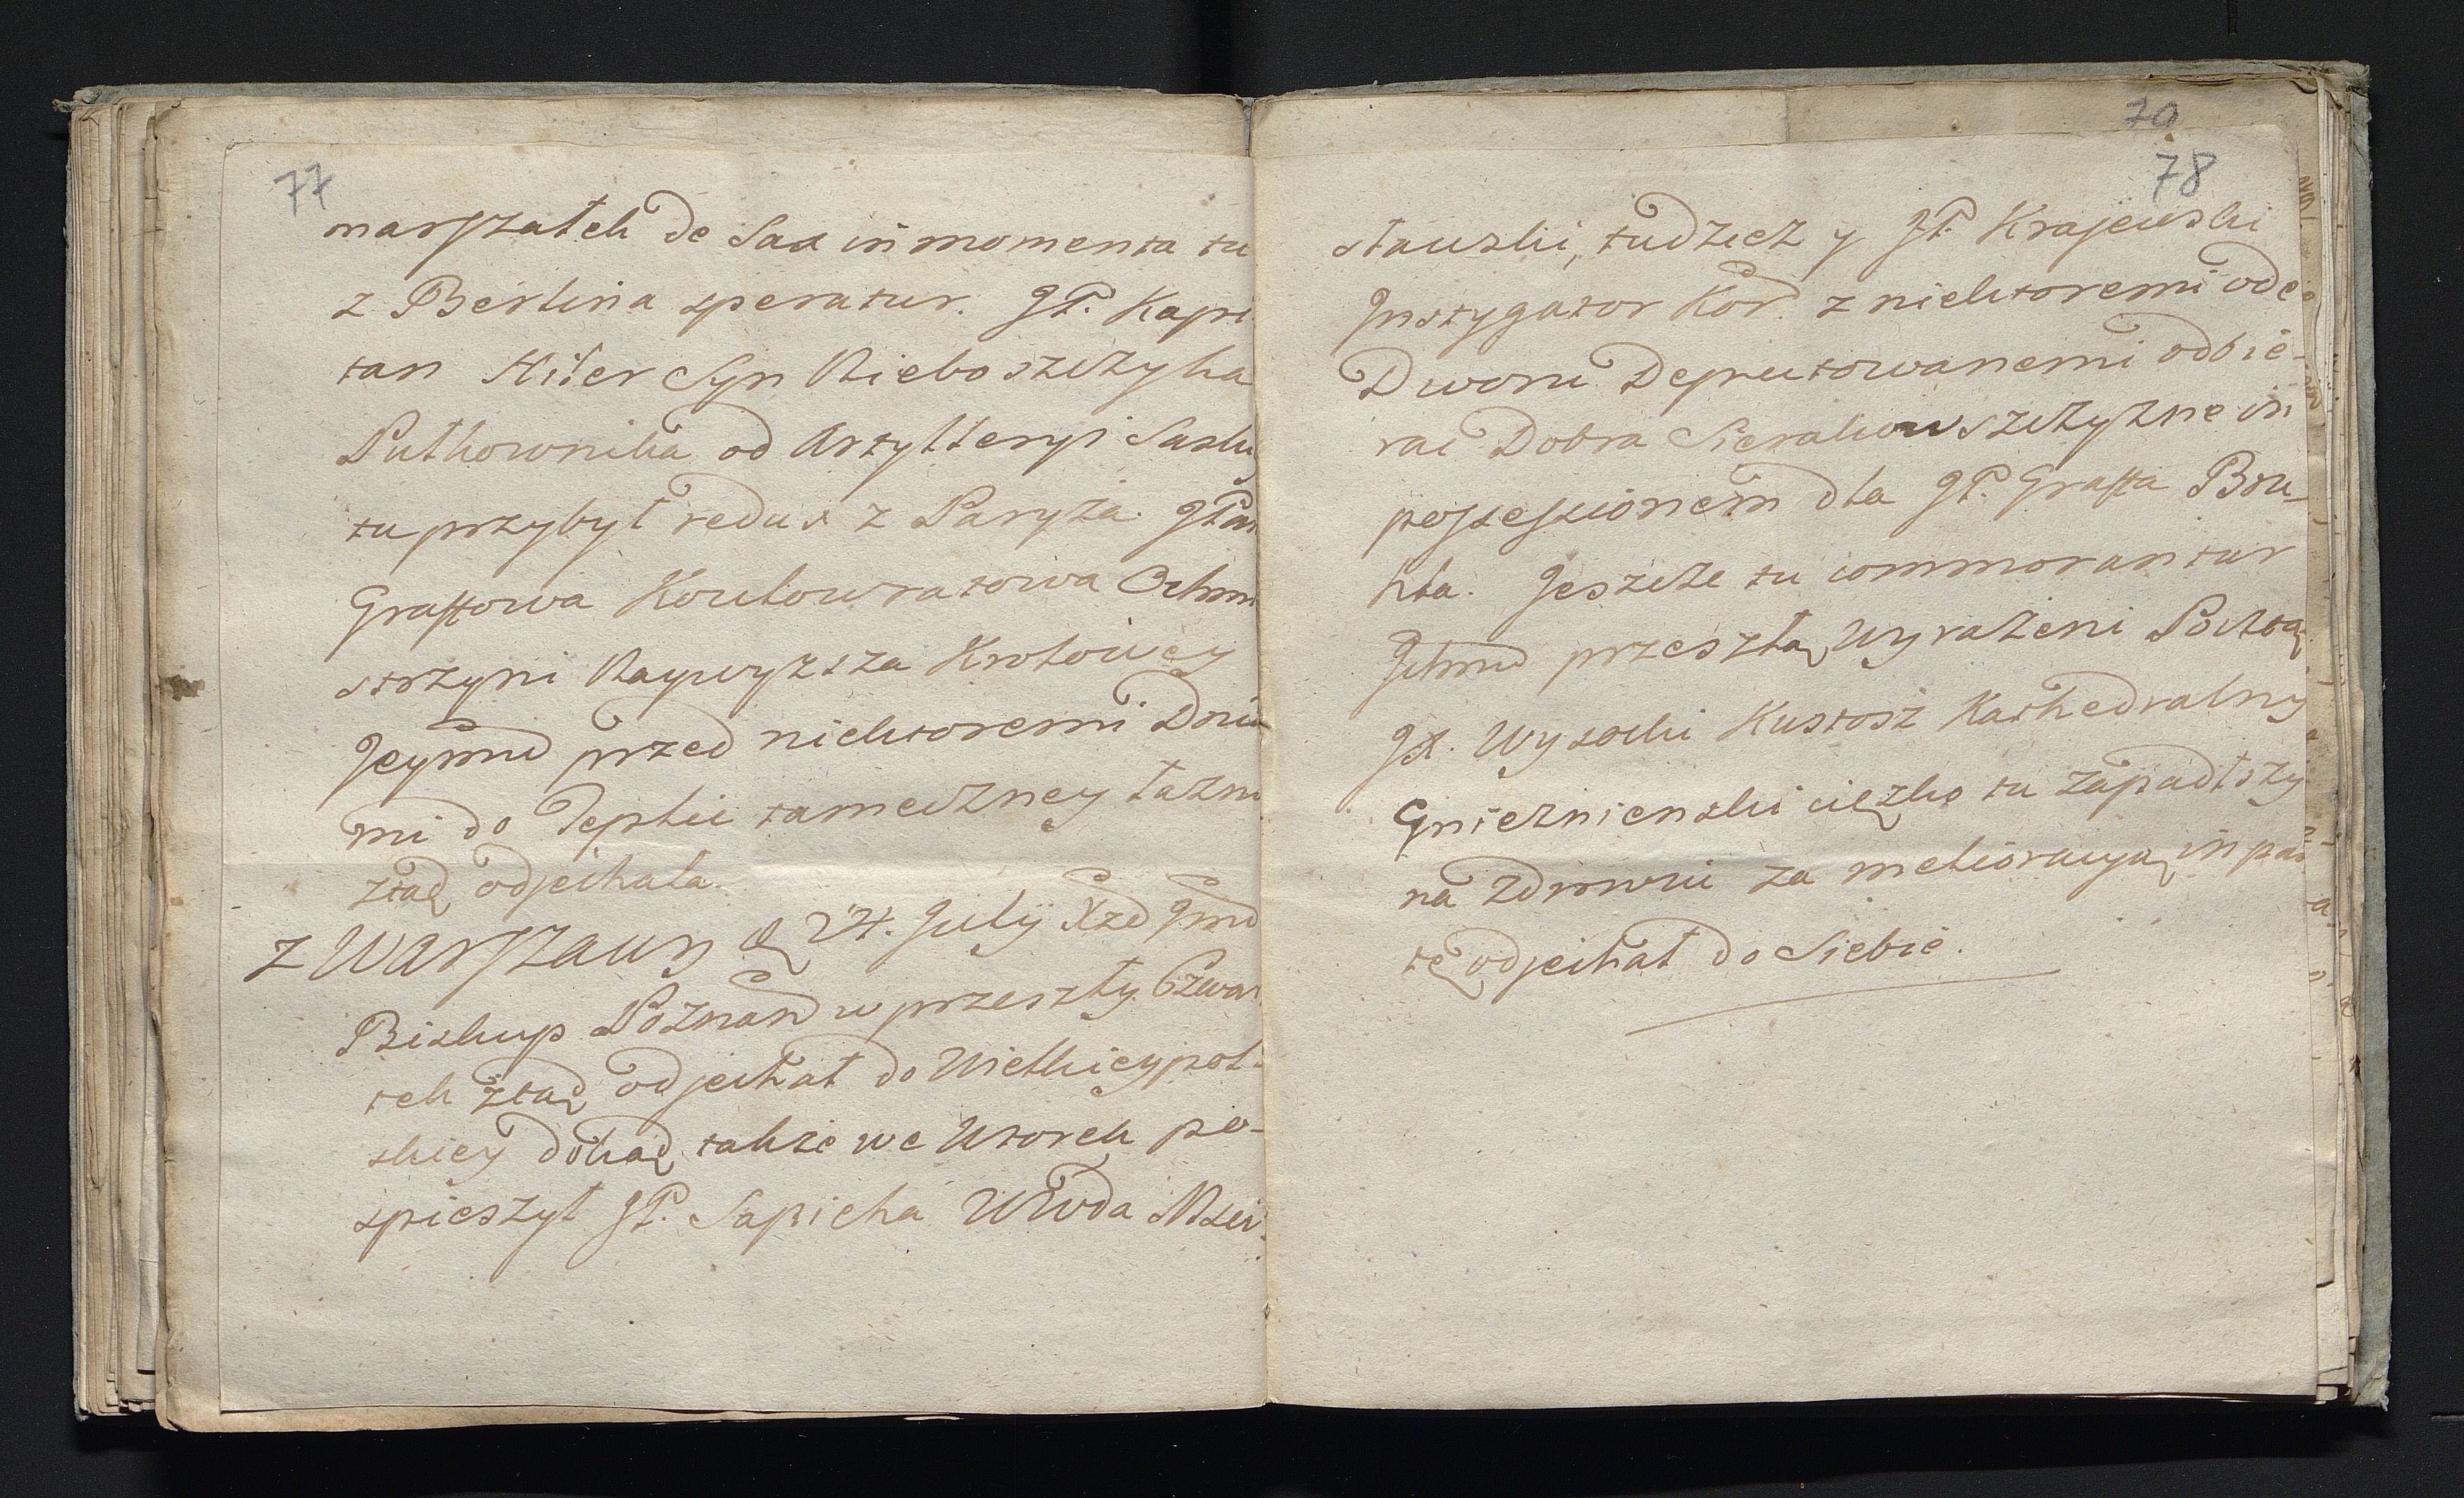 77
marszałek de Sax in momenta tu
z Berlina speratur. JP. Kapi
tan Hiler Syn Nieboszczyka
Pułkownika od Artylleryi Sasky
tu przybył redux z Paryża. JPan
Graffowa Kollowratowa Ochmi
strzyni Naywyższa Krolowey
Jeymd przed niektoremi Dnia
mi do Teplic tameczney łazni
ztąd odjechała.
z Warszawy d 24. July Xżd Jmd
Biskup Poznan w przeszły Czwar
tek ztąd odjechał do Wielkieypol-
skiey dokąd także we Wtorek po-
spieszył JP. Sapieha Wwda Mści
70
78
sławski, tudzież y JP. Krajewski
Instygator Kor. z niektoremi ode
Dworu Deputowanemi odbie-
rać Dobra Sierakowszczyznę in
possessionem dla JP. Graffa Bru-
hla. Jeszcze tu commorantur
Ichmd przeszłą wyrażeni Pocztą
JX. Wysocki Kustosz Kathedralny
Gnieznienski cięzko tu zapadłszy
na zdrowiu za melioracyą in par
te odjechał do Siebie.